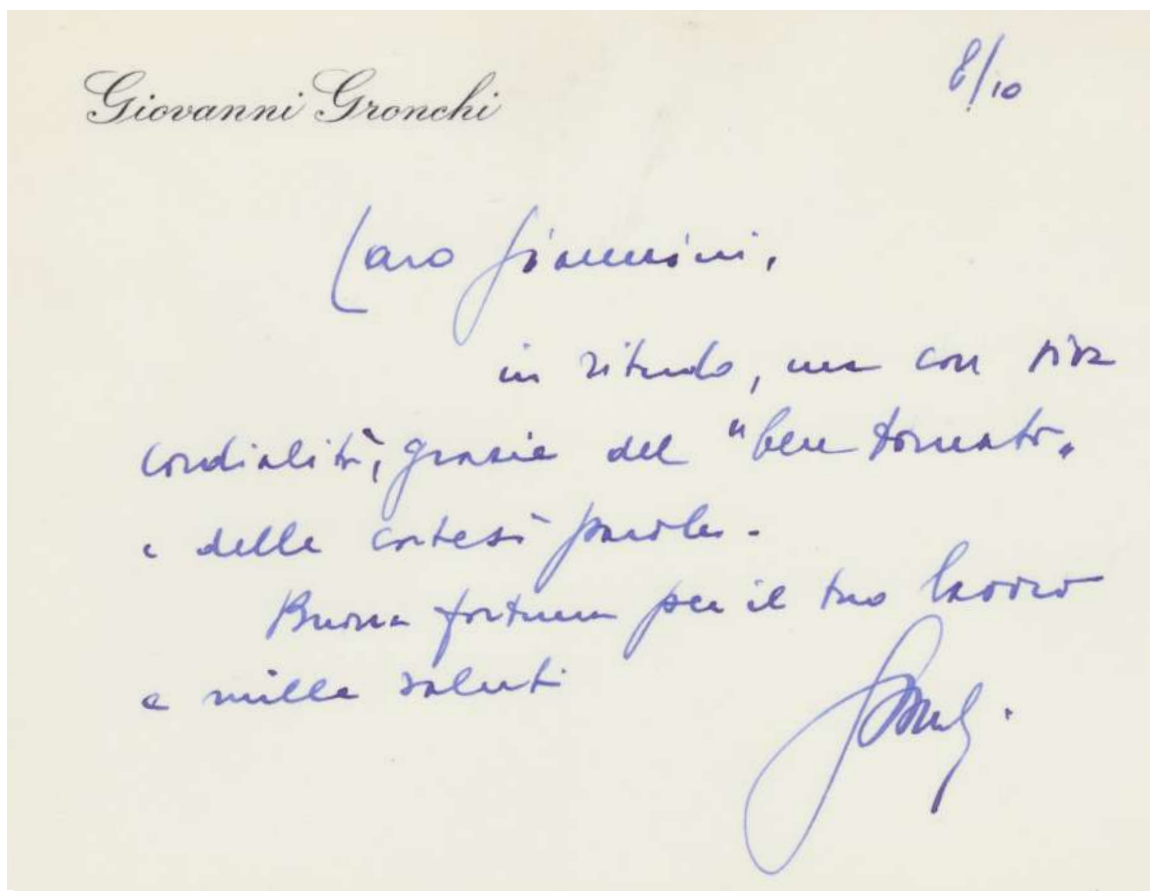 Giovanni Gronchi
8/10
Caro Giannini,
in ritardo, ma con viva
cordialità, grazie del "ben tornato"
e delle cortesi parole.
Buona fortuna per il tuo lavoro
e mille saluti
Gronchi.